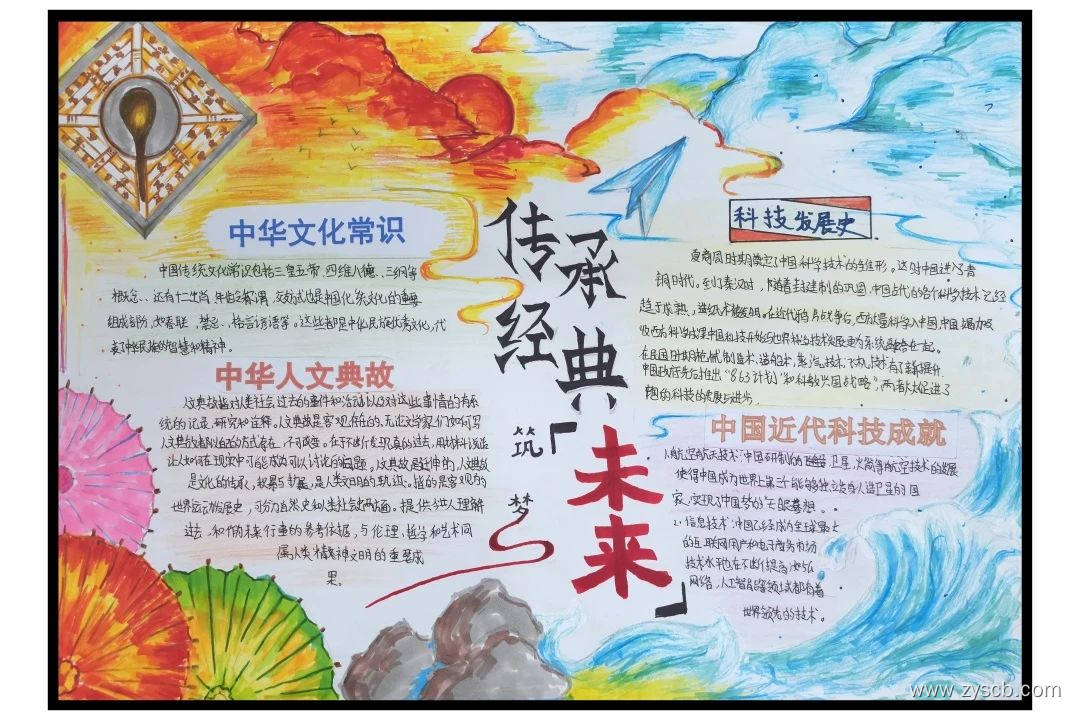 中华文化常识
中国传统文化常识包括三皇五帝、四维八德、三纲等
概念、还有十二生肖、年龄称谓、交友试也是中国化京文化的重要
组成部分,如春联、禁忌、格言谚语等。这些都是中化民族优秀文化,代
表了中华民族的智慧和精神。
中华人文典故
人文典故是对人类社会过去的事件和活动以及对这些事情的有系
统的记录、研究和诠释。人文典故是客观存在的,无论文学家们如何写
人文典故都以自己的方式存在,不可改变。
让人如何在现实中可能成为可以讨论的问题。人文典故是延伸的,人文典故
是文化的传承,积累与扩展,是人类文明的轨迹。指的是客观的
世界运动发展史,可分为自然史和人类社会史两方面。提供今人理解
过去,和作为未来行事的参考依据,与伦理、哲学和艺术同
属人类精神文明的重要成
果。
传承
经典
筑
梦
「未来」
科技发展史
夏商周时期奠定了中国科学技术的雏形。这时中国进入了青
铜时代。到了秦汉时,随着封建制的巩固,中国古代的各个科学技术已经
趋于成熟,造纸术被发明。在近代鸦片战争后,西方大量科学入中国,中国竭力吸
收西方科学成果中国科技开始纳世界科学技术发展史为系统融合在一起。
在民国时期枪械制造术、造船术、蒸汽技术、飞机技术有了新提升
中国政府先后推出“863计划”和“科教兴国战略”,两者大大促进了
中国近代科技成就
1.航空航天技术:中国研制的卫星、火箭等航空技术的发展
使得中国成为世界上第三个能够独立发射人造卫星的国
家,实现了中国梦的飞天梦想。
2.信息技术:中国已经成为全球最大
的互联网用户和电子商务市场
技术水平也在不断提高,如5G
网络、人工智能等领域都有着
世界领先的技术。
www.zyscb.com